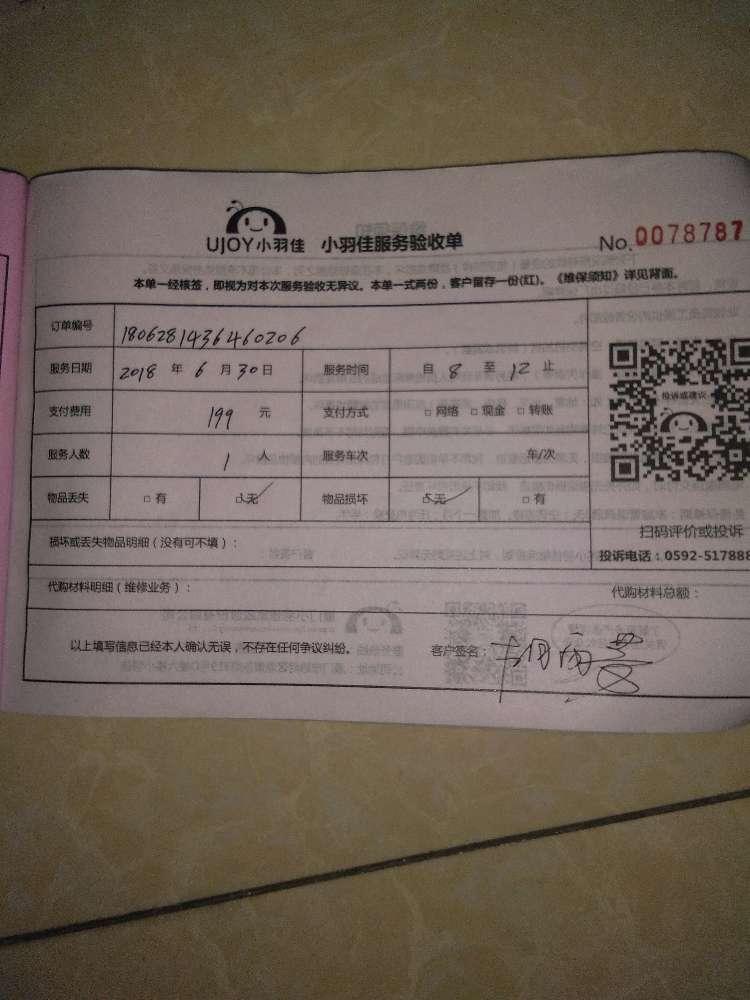 UJOY小羽佳 小羽佳服务验收单 No. 0078787
本单一经核签，即视为对本次服务验收无异议。本单一式两份，客户留存一份(红)。《维保须知》详见背面。
订单编号 1806281436460206
服务日期 2018 年 6 月 30 日 服务时间 自 8 至 12 止
支付费用 199 元 支付方式 □ 网络 □ 现金 □ 转账
服务人数 1 人 服务车次 车/次
物品丢失 □ 有 □ 无 ✓ 物品损坏 □ 无 ✓ □ 有
投诉或建议
扫码评价或投诉
损坏或丢失物品明细（没有可不填）：
投诉电话：0592-517888
代购材料明细（维修业务）： 代购材料总额：
以上填写信息已经本人确认无误，不存在任何争议纠纷。 客户签名：